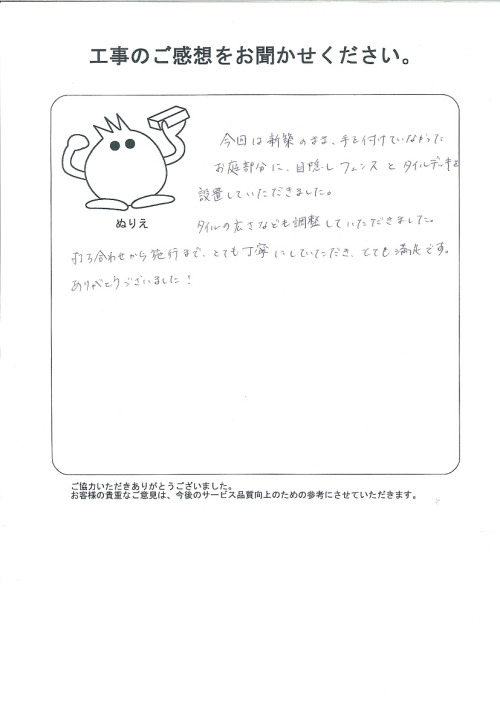 工事のご感想をお聞かせください。
今回は新築のまま、手を付けていなかった
お庭部分に、目隠しフェンスとタイルデッキを
設置していただきました。
ぬりえ
タイルの広さなども調整していただきました。
打ち合わせから施行まで、とても丁寧にしていただき、とても満足です。
ありがとうございました！
ご協力いただきありがとうございました。
お客様の貴重なご意見は、今後のサービス品質向上のための参考にさせていただきます。